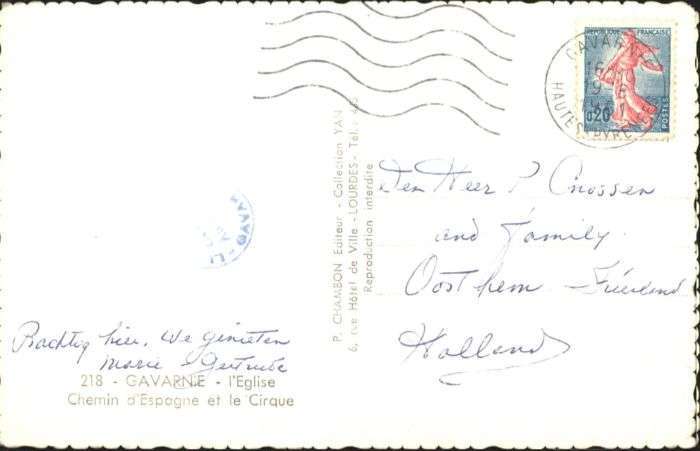 REPUBLIQUE FRANÇAISE
0,20
POSTES
GAVARNIE
HAUTES PYRENEES
Den Heer P. Cnossen
and Family
Oosthem - Friesland
Holland
P. CHAMBON Editeur - Collection YAN
6, rue Hôtel de Ville - LOURDES - Tél.:
Reproduction interdite
GAVAR
Prachtig hier. We genieten
Marie - Gertrude
218 - GAVARNIE - l'Eglise
Chemin d'Espagne et le Cirque